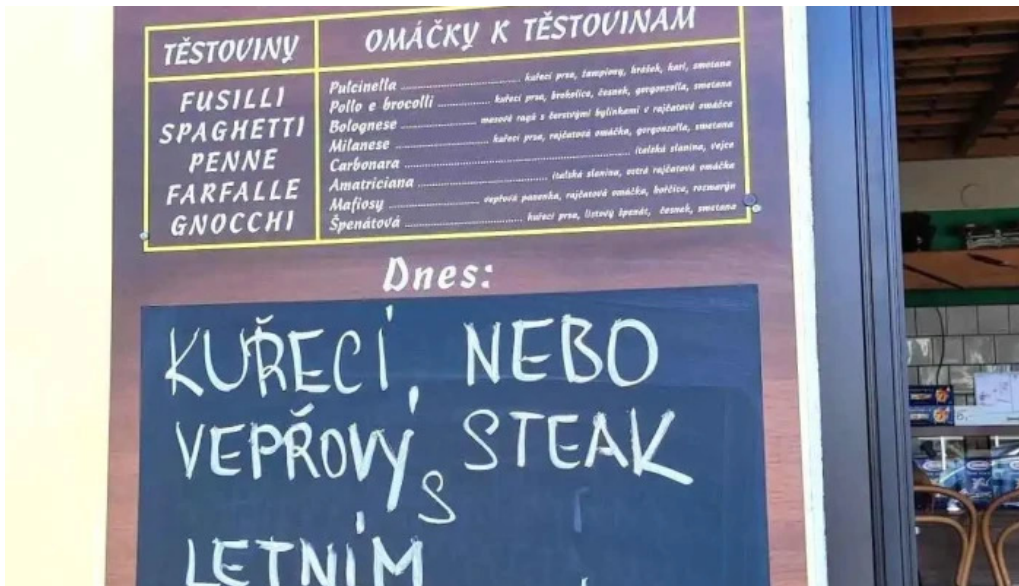 TĚSTOVINY
FUSILLI
SPAGHETTI
PENNE
FARFALLE
GNOCCHI
OMÁČKY K TĚSTOVINÁM
Pulcinella ........................ kuřecí prsa, žampiony, hrášek, kari, smetana
Pollo e brocolli ........................ kuřecí prsa, brokolice, česnek, gorgonzolla, smetana
Bolognese ........................ masové ragú s čerstvými bylinkami v rajčatové omáčce
Milanese ........................ kuřecí prsa, rajčatová omáčka, gorgonzolla, smetana
Carbonara ........................ italská slanina, vejce
Amatriciana ........................ italská slanina, ostrá rajčatová omáčka
Mafiosy ........................ vepřová panenka, rajčatová omáčka, hořčice, rozmarýn
Špenátová ........................ kuřecí prsa, listový špenát, česnek, smetana
Dnes:
KUŘECÍ, NEBO
VEPŘOVÝ STEAK
S
LETNÍM